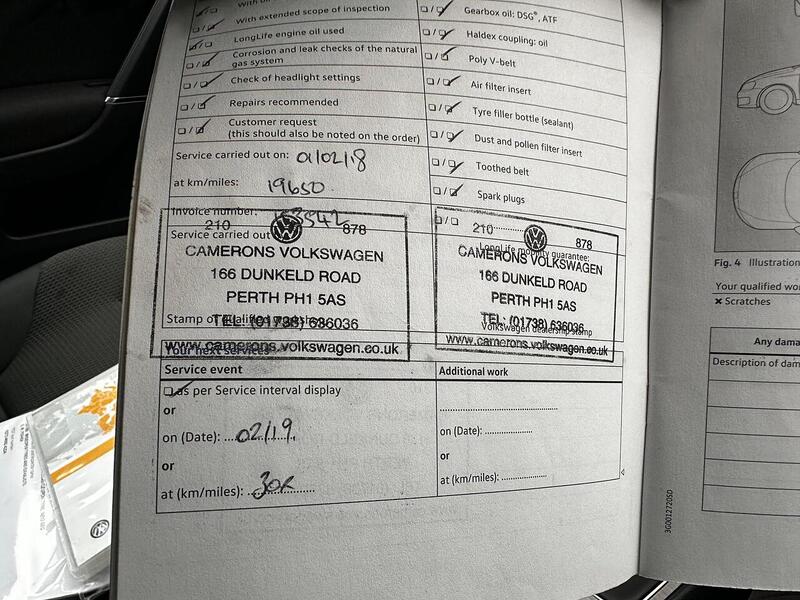 With extended scope of inspection
LongLife engine oil used
Corrosion and leak checks of the natural
gas system
Check of headlight settings
Repairs recommended
Customer request
(this should also be noted on the order)
Gearbox oil: DSG®, ATF
Haldex coupling: oil
Poly V-belt
Air filter insert
Tyre filler bottle (sealant)
Dust and pollen filter insert
Toothed belt
Spark plugs
Service carried out on: 01/02/18
at km/miles: 19650
Invoice number:
Service carried out
210 878
CAMERONS VOLKSWAGEN
166 DUNKELD ROAD
PERTH PH1 5AS
TEL: (01738) 636036
www.camerons.volkswagen.co.uk
Stamp of
Your next services
LongLife mobility guarantee:
210 878
CAMERONS VOLKSWAGEN
166 DUNKELD ROAD
PERTH PH1 5AS
TEL: (01738) 636036
Volkswagen dealership stamp
www.camerons.volkswagen.co.uk
Service event
as per Service interval display
or
on (Date): 02/19
or
at (km/miles): 30K
Additional work
on (Date):
or
at (km/miles):
3G0012720SD
Fig. 4 Illustration
Your qualified
× Scratches
Any
Description of